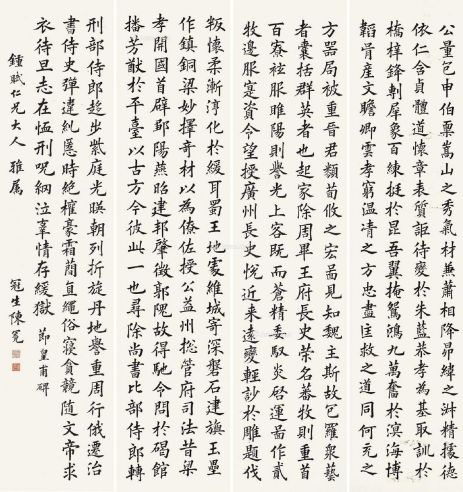 公量包申伯稟嵩山之秀氣材兼蕭相降昴緯之淑精據德
依仁含貞體道懷章表質詎待變於朱藍恭孝為基取訓於
橋梓鋒剸犀象百練挺於昆吾翼掩鴛鴻九萬奮於溟海博
韜骨產文瞻卿雲孝窮溫清之方忠盡匡救之道同何充之
方器局被重晉君類荀攸之宏啚見知魏主斯故包羅衆藝
者囊括群英者也起家除周畢王府長史榮名蕃牧則重首
百寮袨服睢陽則譽光上客既而蒼精委馭炎啓運啚作貳
牧邊服寔資令望授廣州長史悅近来遠變輕訬於雕題伐
叛懷柔漸淳化於緩耳蜀王地處維城寄深磐石建旟玉壘
作鎮銅梁妙擇奇材以為僚佐授公益州揔管府司法昔梁
孝開國首辟鄒陽燕昭建邦肇徵郭隗故得馳令問於碣館
播芳猷於平臺以古方今彼此一也尋除尚書比部侍郎轉
刑部侍郎趍出紫庭光暎朝列折旋丹地譽重周行俄遷治
書侍史彈違糺慝時絕權豪霜簡直繩俗寢貪競隨文帝求
衣待旦志在恤刑呪網泣辜情存緩獄 節皇甫碑
鍾賦仁兄大人 雅屬 冠生陳冕